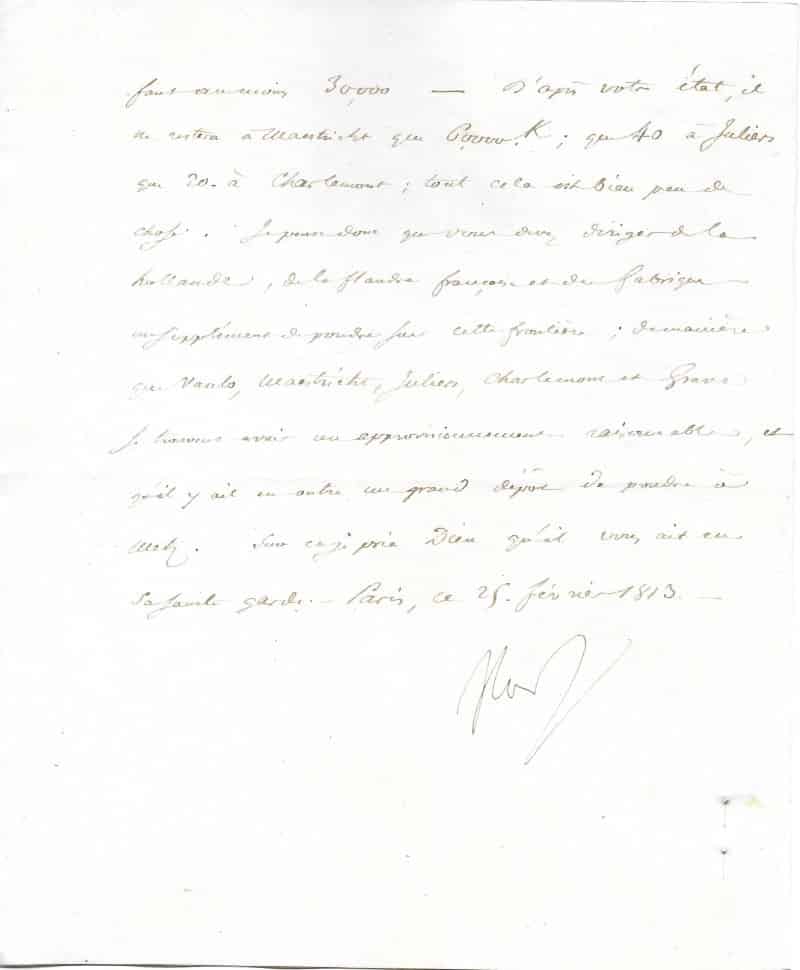 faut au moins 30,000 — D'après votre état, il
ne restera à Maestricht que 60,000 K; que 40 à Juliers
que 20. à Charlemont; tout cela est bien peu de
chose. Je pense donc que vous devez diriger de la
hollande, de la flandre française et des fabriques
un supplément de poudre sur cette frontière; de manière
que Vanlo, Maestricht, Juliers, Charlemont et Grave
se trouvent avoir un approvisionnement raisonnable, et
qu'il y ait en outre un grand dépôt de poudre à
Metz. Sur ce je prie Dieu qu'il vous ait en
Sa sainte garde. — Paris, ce 25. février 1813. —